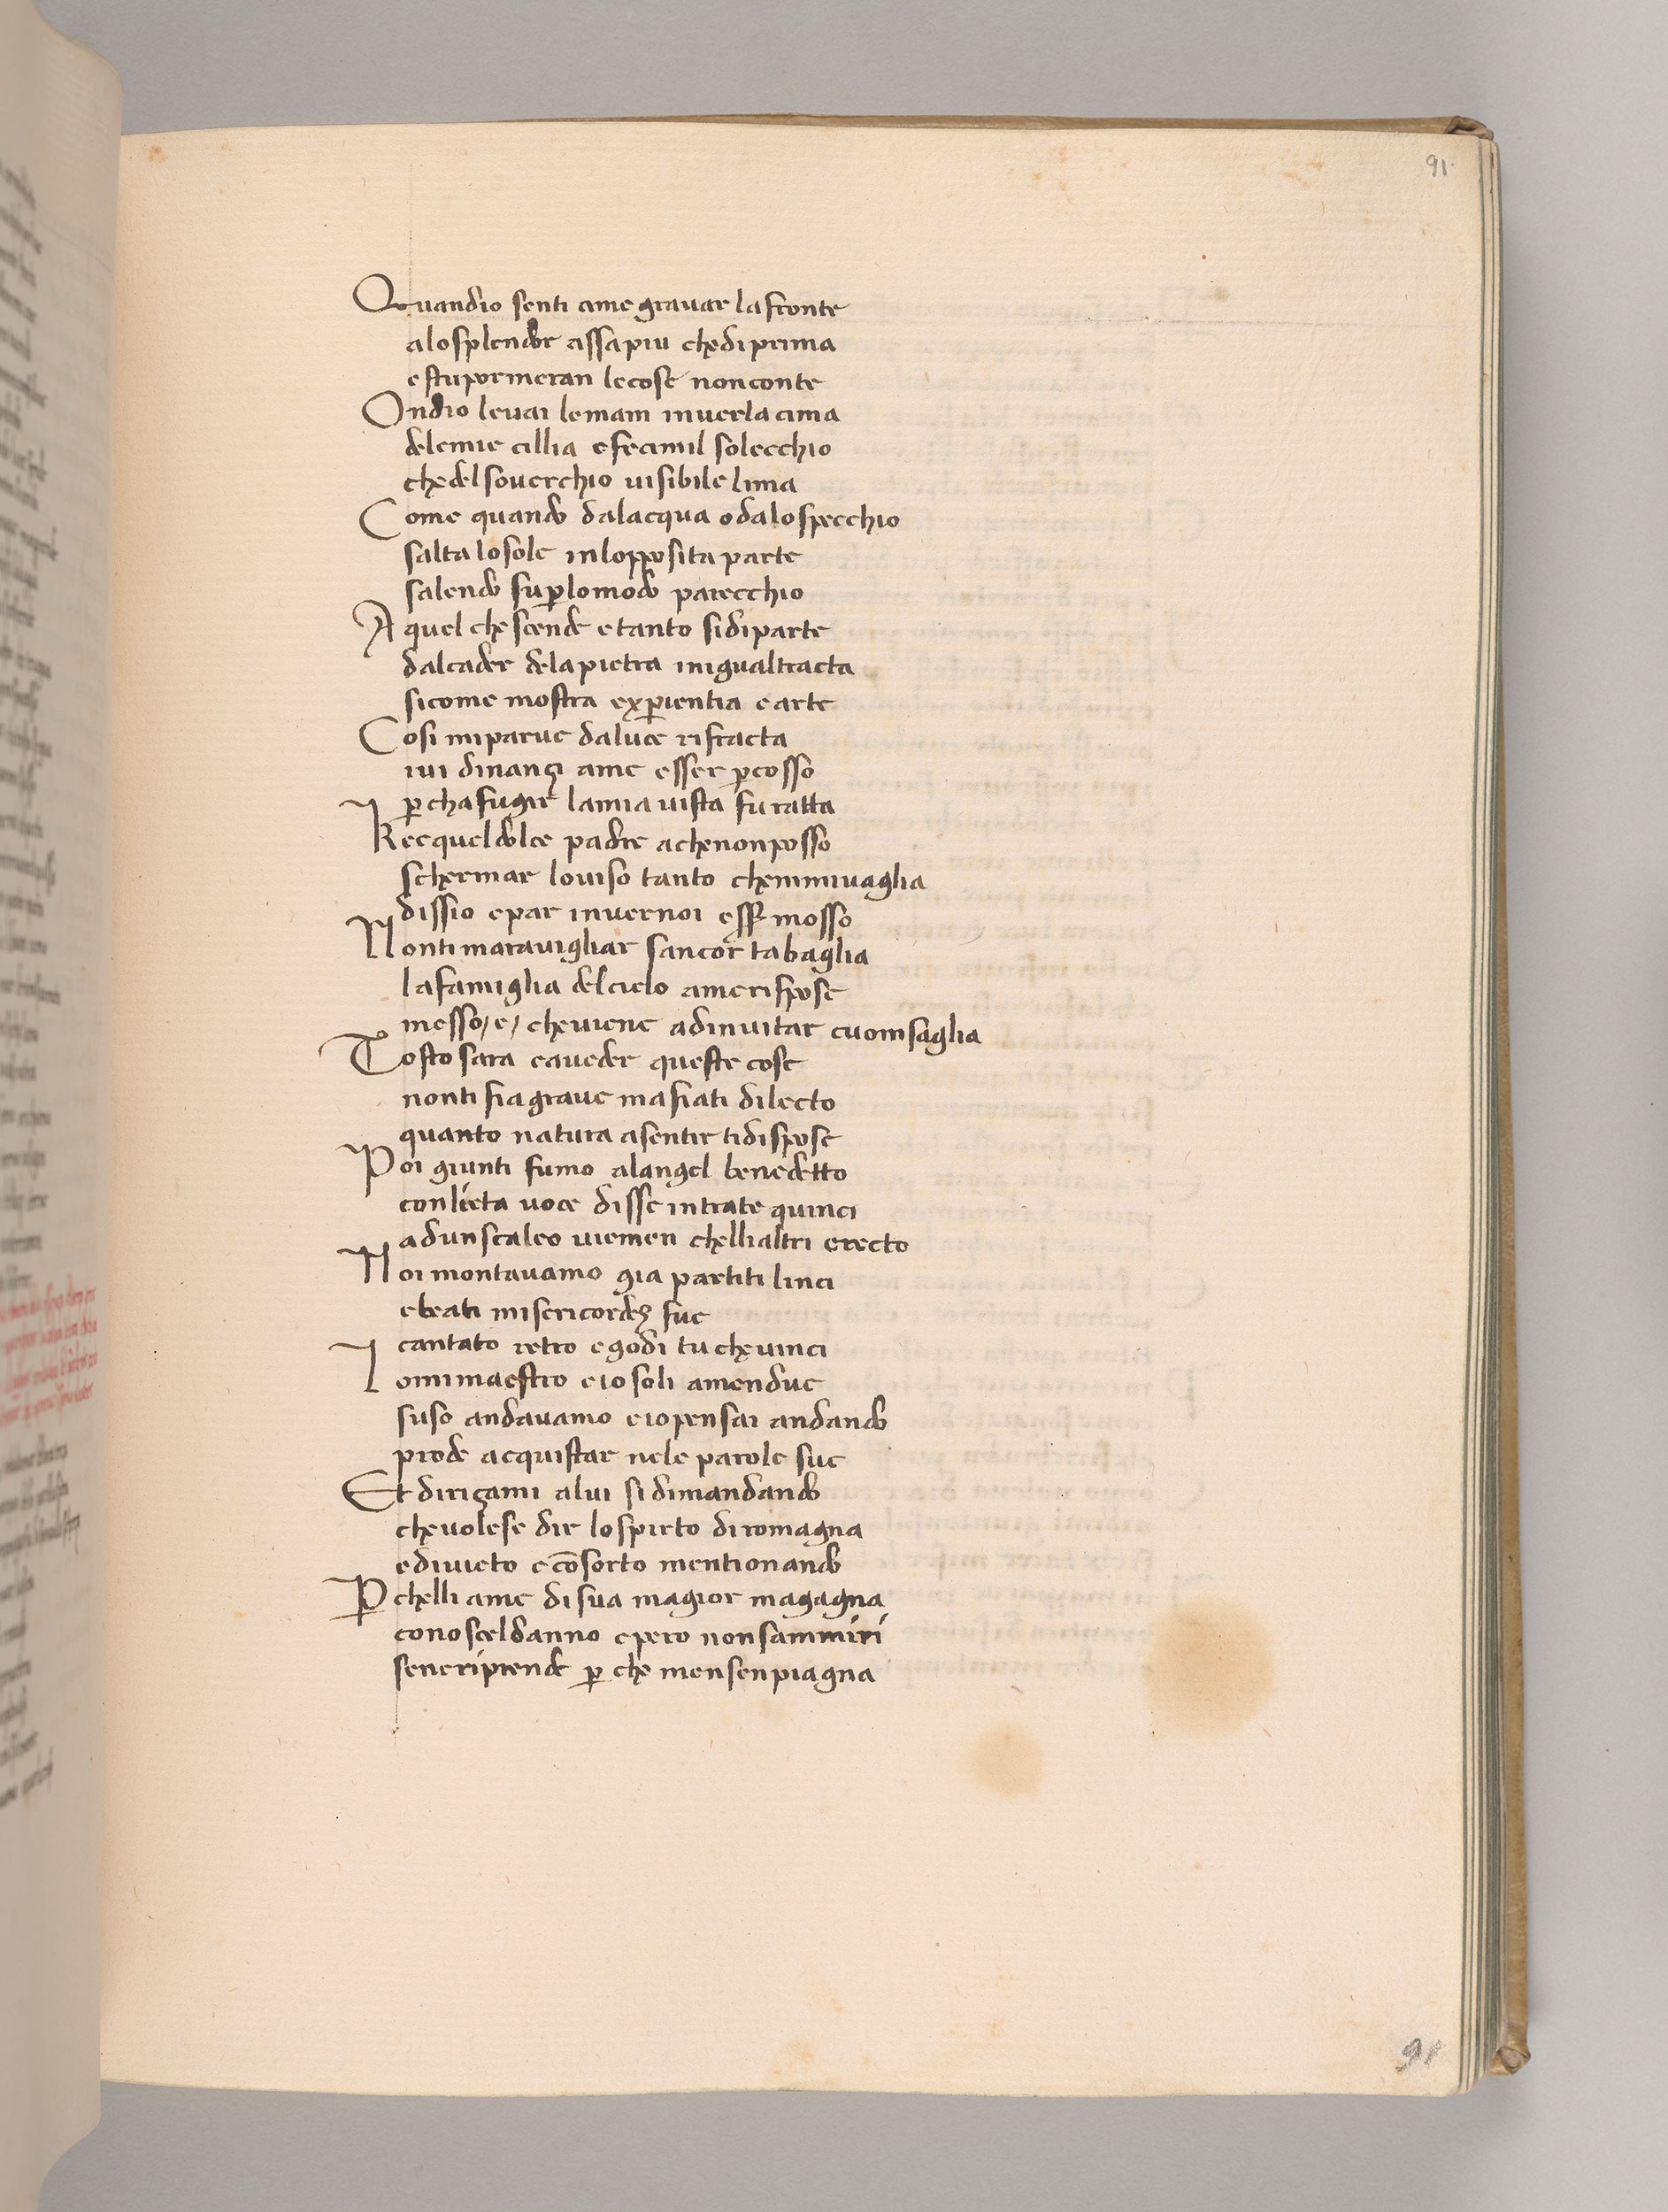 91
Quandio senti ame gravar lafronte
alosplendor assapiu chediprima
estupormeran lecose nonconte
Ondio levai lemam inverla cima
delemie cillia efecimil solecchio
chedelsoverchio visibile lima
Come quando dalacqua odalospecchio
salta losole inlopposita parte
salendo suꝑlomodo parecchio
A quel che scende etanto sidiparte
dalcader delapietra inigualtracta
sicome mostra exꝑientia earte
Cosi miparve daluce rifracta
ivi dinançi ame esser ꝑcosso
ꝑchafugir lamia vista furatta
Kecquel dolce padre achenonposso
schermar loviso tanto chemmivaglia
dissio epar invernoi esser mosso
Nonti maravigliar sancor tabaglia
lafamiglia delcielo amerispose
messo/e/ cheviene adinvitar cuomsaglia
Tosto sara caveder queste cose
nonti fiagrave mafiati dilecto
quanto natura asentir tidispose
Poi giunti fumo alangel benedetto
conlieta voce disse intrate quinci
adunscaleo viemen chelli altri erecto
Noi montavamo gia partiti linci
ebeati misericordes fue
cantato retro egodi tu chevinci
Iomimaestro eiosoli amendue
suso andavamo eiopensai andando
prode acquistar nele parole sue
Et diriçami alui sidimandando
chevolese dir lospirto diromagna
edivieto ecōsorto mentionando
Ꝑchelli ame disua magior magagna
conosceldanno epero nonsammiri
seneriprende ꝑ che mensenpiagna
91